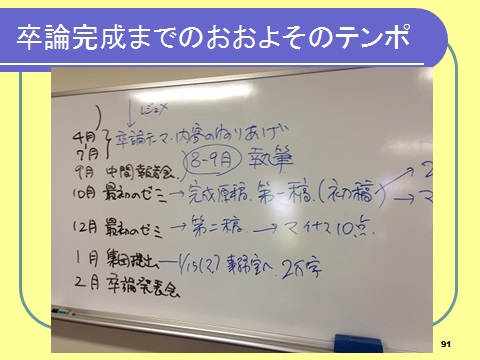 卒論完成までのおおよそのテンポ
レジュメ
4月 卒論テーマ・内容のねりあげ
7月
8-9月 執筆
9月 中間報告会
10月 最初のゼミ→完成原稿.第一稿.(初稿) 2
マ
12月 最初のゼミ→第二稿. →マイナス10点.
1月 集団提出―1/15(?)事務室へ.2万字
2月 卒論発表会
91